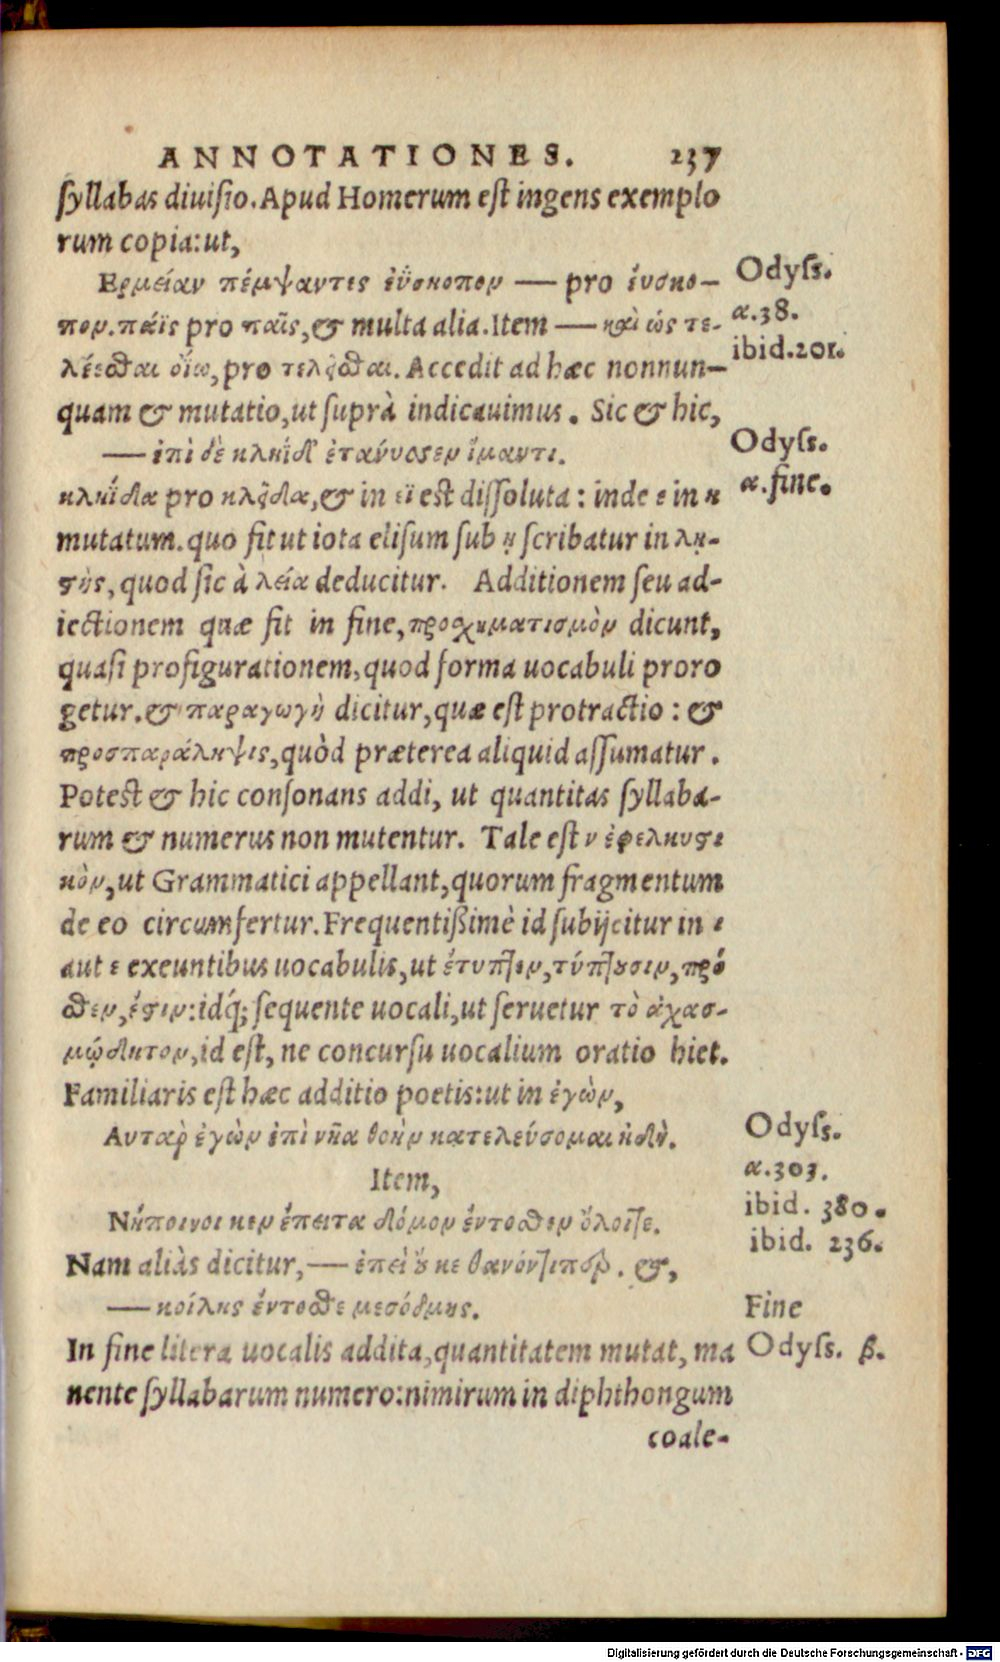 ANNOTATIONES. 237
syllabas diuisio. Apud Homerum est ingens exemplo
rum copia: ut,
Ερμείαν πέμψαντες ἐΰσκοπον — pro ἐύσκο-
πον. πάϊς pro παῖς, & multa alia. Item — καὶ ὡς τε-
λέεσθαι ὀΐω, pro τελεῖσθαι. Accedit ad hæc nonnun-
quam & mutatio, ut suprà indicauimus. Sic & hic,
— ἐπὶ δὲ κληῗδ' ἐτάνυσσεν ἵμαντι.
κληῗδα pro κλεῖδα, & in εϊ est dissoluta: inde ε in η
mutatum. quo fit ut iota elisum sub ῃ scribatur in λῃ-
στὴς, quod sic à λεία deducitur. Additionem seu ad-
iectionem quæ fit in fine, προσχηματισμὸν dicunt,
quasi profigurationem, quod forma uocabuli proro
getur. & παραγωγὴ dicitur, quæ est protractio: &
προσπαράληψις, quòd præterea aliquid assumatur.
Potest & hic consonans addi, ut quantitas syllaba-
rum & numerus non mutentur. Tale est ν ἐφελκυστι
κὸν, ut Grammatici appellant, quorum fragmentum
de eo circumfertur. Frequentißimè id subijcitur in ι
aut ε exeuntibus uocabulis, ut ἔτυπτεν, τύπτουσιν, πρό
σθεν, ἔστιν: idq́; sequente uocali, ut seruetur τὸ ἀχασ-
μώδητον, id est, ne concursu uocalium oratio hiet.
Familiaris est hæc additio poetis: ut in ἐγὼν,
Αυταρ ἐγὼν ἐπὶ νῆα θοὴν κατελεύσομαι ἤδη.
Item,
Νήποινοι κεν ἔπειτα δόμον ἔντοσθεν ὄλοισθε.
Nam aliàs dicitur, — ἐπεὶ οὔ κε θανόντι περ. &,
— κοίλης ἔντοσθε μεσόδμης.
In fine litera uocalis addita, quantitatem mutat, ma
nente syllabarum numero: nimirum in diphthongum
coale-
Odyss.
α. 38.
ibid. 201.
Odyss.
α. fine.
Odyss.
α. 303.
ibid. 380.
ibid. 236.
Fine
Odyss. β.
Digitalisierung gefördert durch die Deutsche Forschungsgemeinschaft - DFG